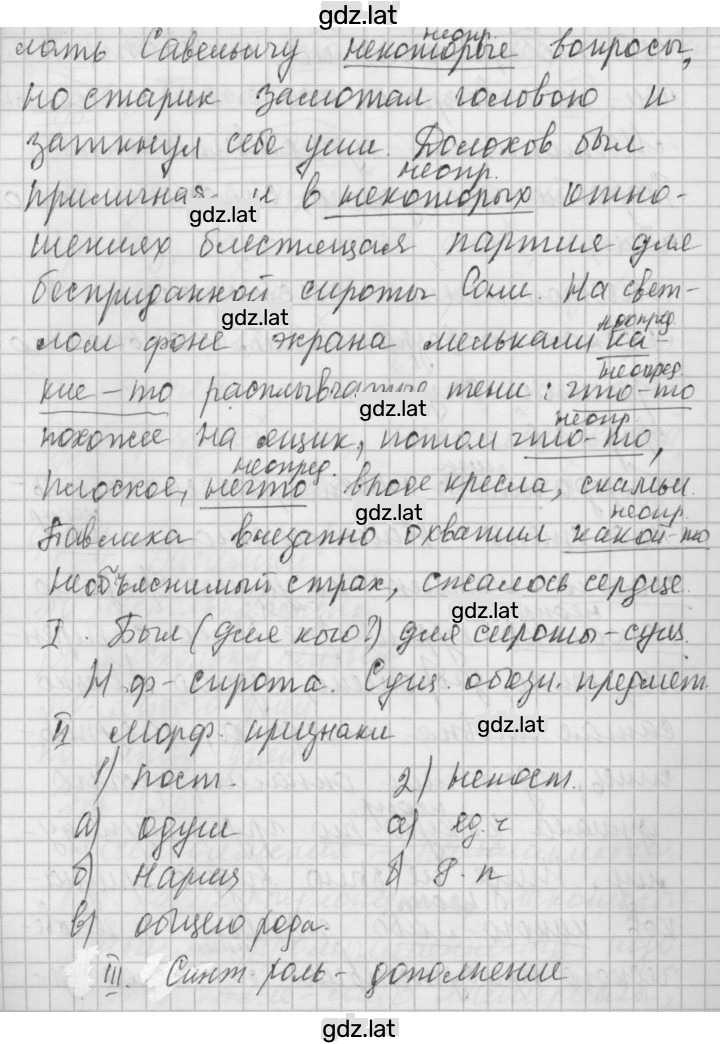 gdz.lat
неопр.
лать Савельичу некоторые вопросы,
но старик замотал головою и
заткнул себе уши. Долохов был
неопр.
приличная и в некоторых отно-
gdz.lat
шениях блестящая партия для
бесприданной сироты Сони. На свет-
gdz.lat
неопред.
лом фоне экрана мелькали ка-
неопред.
кие-то расплывчатые тени: что-то
gdz.lat
неопр.
похоже на ящик, потом что-то,
неопред.
плоское, нечто вроде кресла, скамьи.
gdz.lat
неопр.
Павлика внезапно охватил какой-то
необъяснимый страх, сжалось сердце.
gdz.lat
I. Был (для кого?) для сироты-сущ.
Н.ф-сирота. Сущ. обозн. предмет.
II Морф. признаки
gdz.lat
1) Пост. 2) Непост.
а) одуш а) ед.ч
б) нариц б) Р.п
в) общего рода.
III. Синт. роль - дополнение
gdz.lat